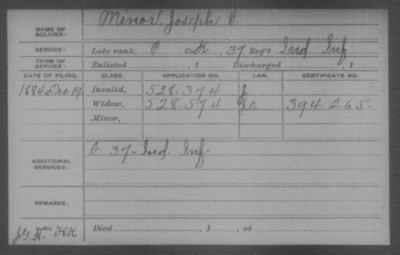 NAME OF SOLDIER: Minor, Joseph
SERVICE: Late rank, P Co. K, 37 Reg't Ind Inf.
TERM OF SERVICE: Enlisted , 1 Discharged , 1
DATE OF FILING. CLASS. APPLICATION NO. LAW. CERTIFICATE NO.
1884, Dec. 19 Invalid, 528.374 J
Widow, 528.574 Gn. 394.265.
Minor,
ADDITIONAL SERVICES: 37 Ind. Inf.
REMARKS:
Died , 1 , at